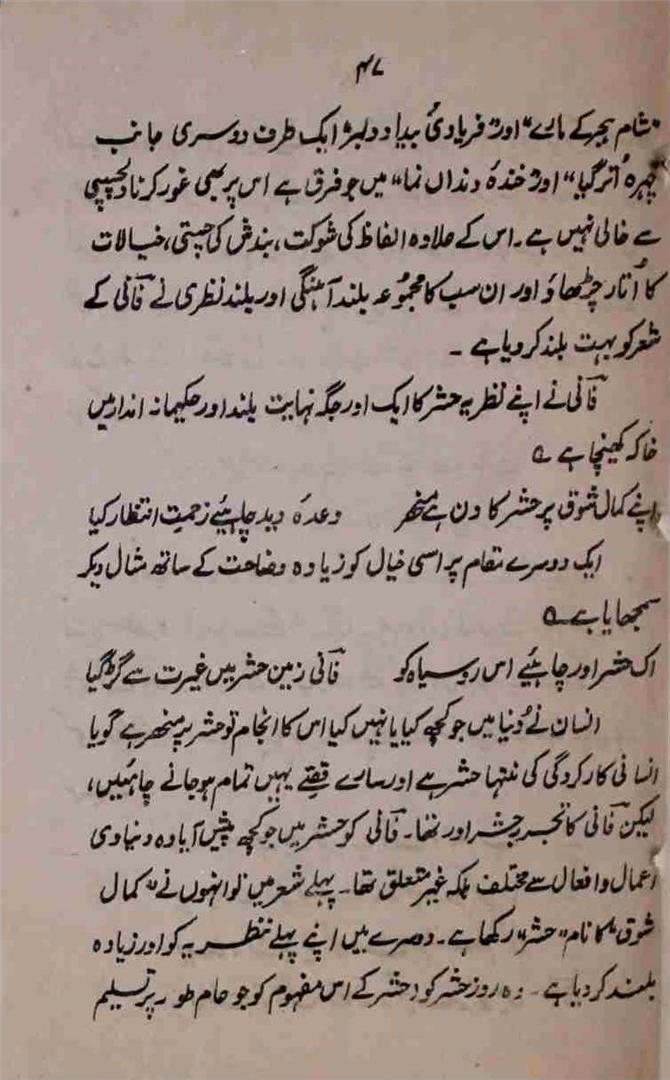 ۴۷
"شام ہجر کے مارے" اور "فریادیٔ بیداد دلبر" ایک طرف دوسری جانب
"چہرہ اُتر گیا" اور "خندہ دنداں نما" میں جو فرق ہے اس پر بھی غور کرنا دلچسپی
سے خالی نہیں ہے۔ اس کے علاوہ الفاظ کی شوکت، بندش کی چستی، خیالات
کا اُتار چڑھاؤ اور ان سب کا مجموعہ بلند آہنگی اور بلند نظری نے فانی کے
شعر کو بہت بلند کر دیا ہے۔
فانی نے اپنے نظریہ حشر کا ایک اور جگہ نہایت بلند اور حکیمانہ انداز میں
خاکہ کھینچا ہے ؎
اپنے کمال شوق پر حشر کا دن ہے منحصر وعدہ دید چاہیئے زحمتِ انتظار کیا
ایک دوسرے مقام پر اسی خیال کو زیادہ وضاحت کے ساتھ مثال دیکر
سمجھایا ہے ؎
اک حشر اور چاہیئے اس روسیاہ کو فانی زمین حشر میں غیرت سے گڑ گیا
انسان نے دُنیا میں جو کچھ کیا یا نہیں کیا اس کا انجام تو حشر پر منحصر ہے گویا
انسانی کارکردگی کی منتہا حشر ہے اور سارے قصّے یہیں تمام ہو جانے چاہئیں،
لیکن فانی کا تجربہ حشر اور تھا۔ فانی کو حشر میں جو کچھ پیش آیا وہ دنیاوی
اعمال و افعال سے مختلف بلکہ غیر متعلق تھا۔ پہلے شعر میں تو انہوں نے "کمال
شوق" کا نام "حشر" رکھا ہے۔ دوسرے میں اپنے پہلے نظریہ کو اور زیادہ
بلند کر دیا ہے۔ وہ روز حشر کو (حشر کے اس مفہوم کو جو عام طور پر تسلیم